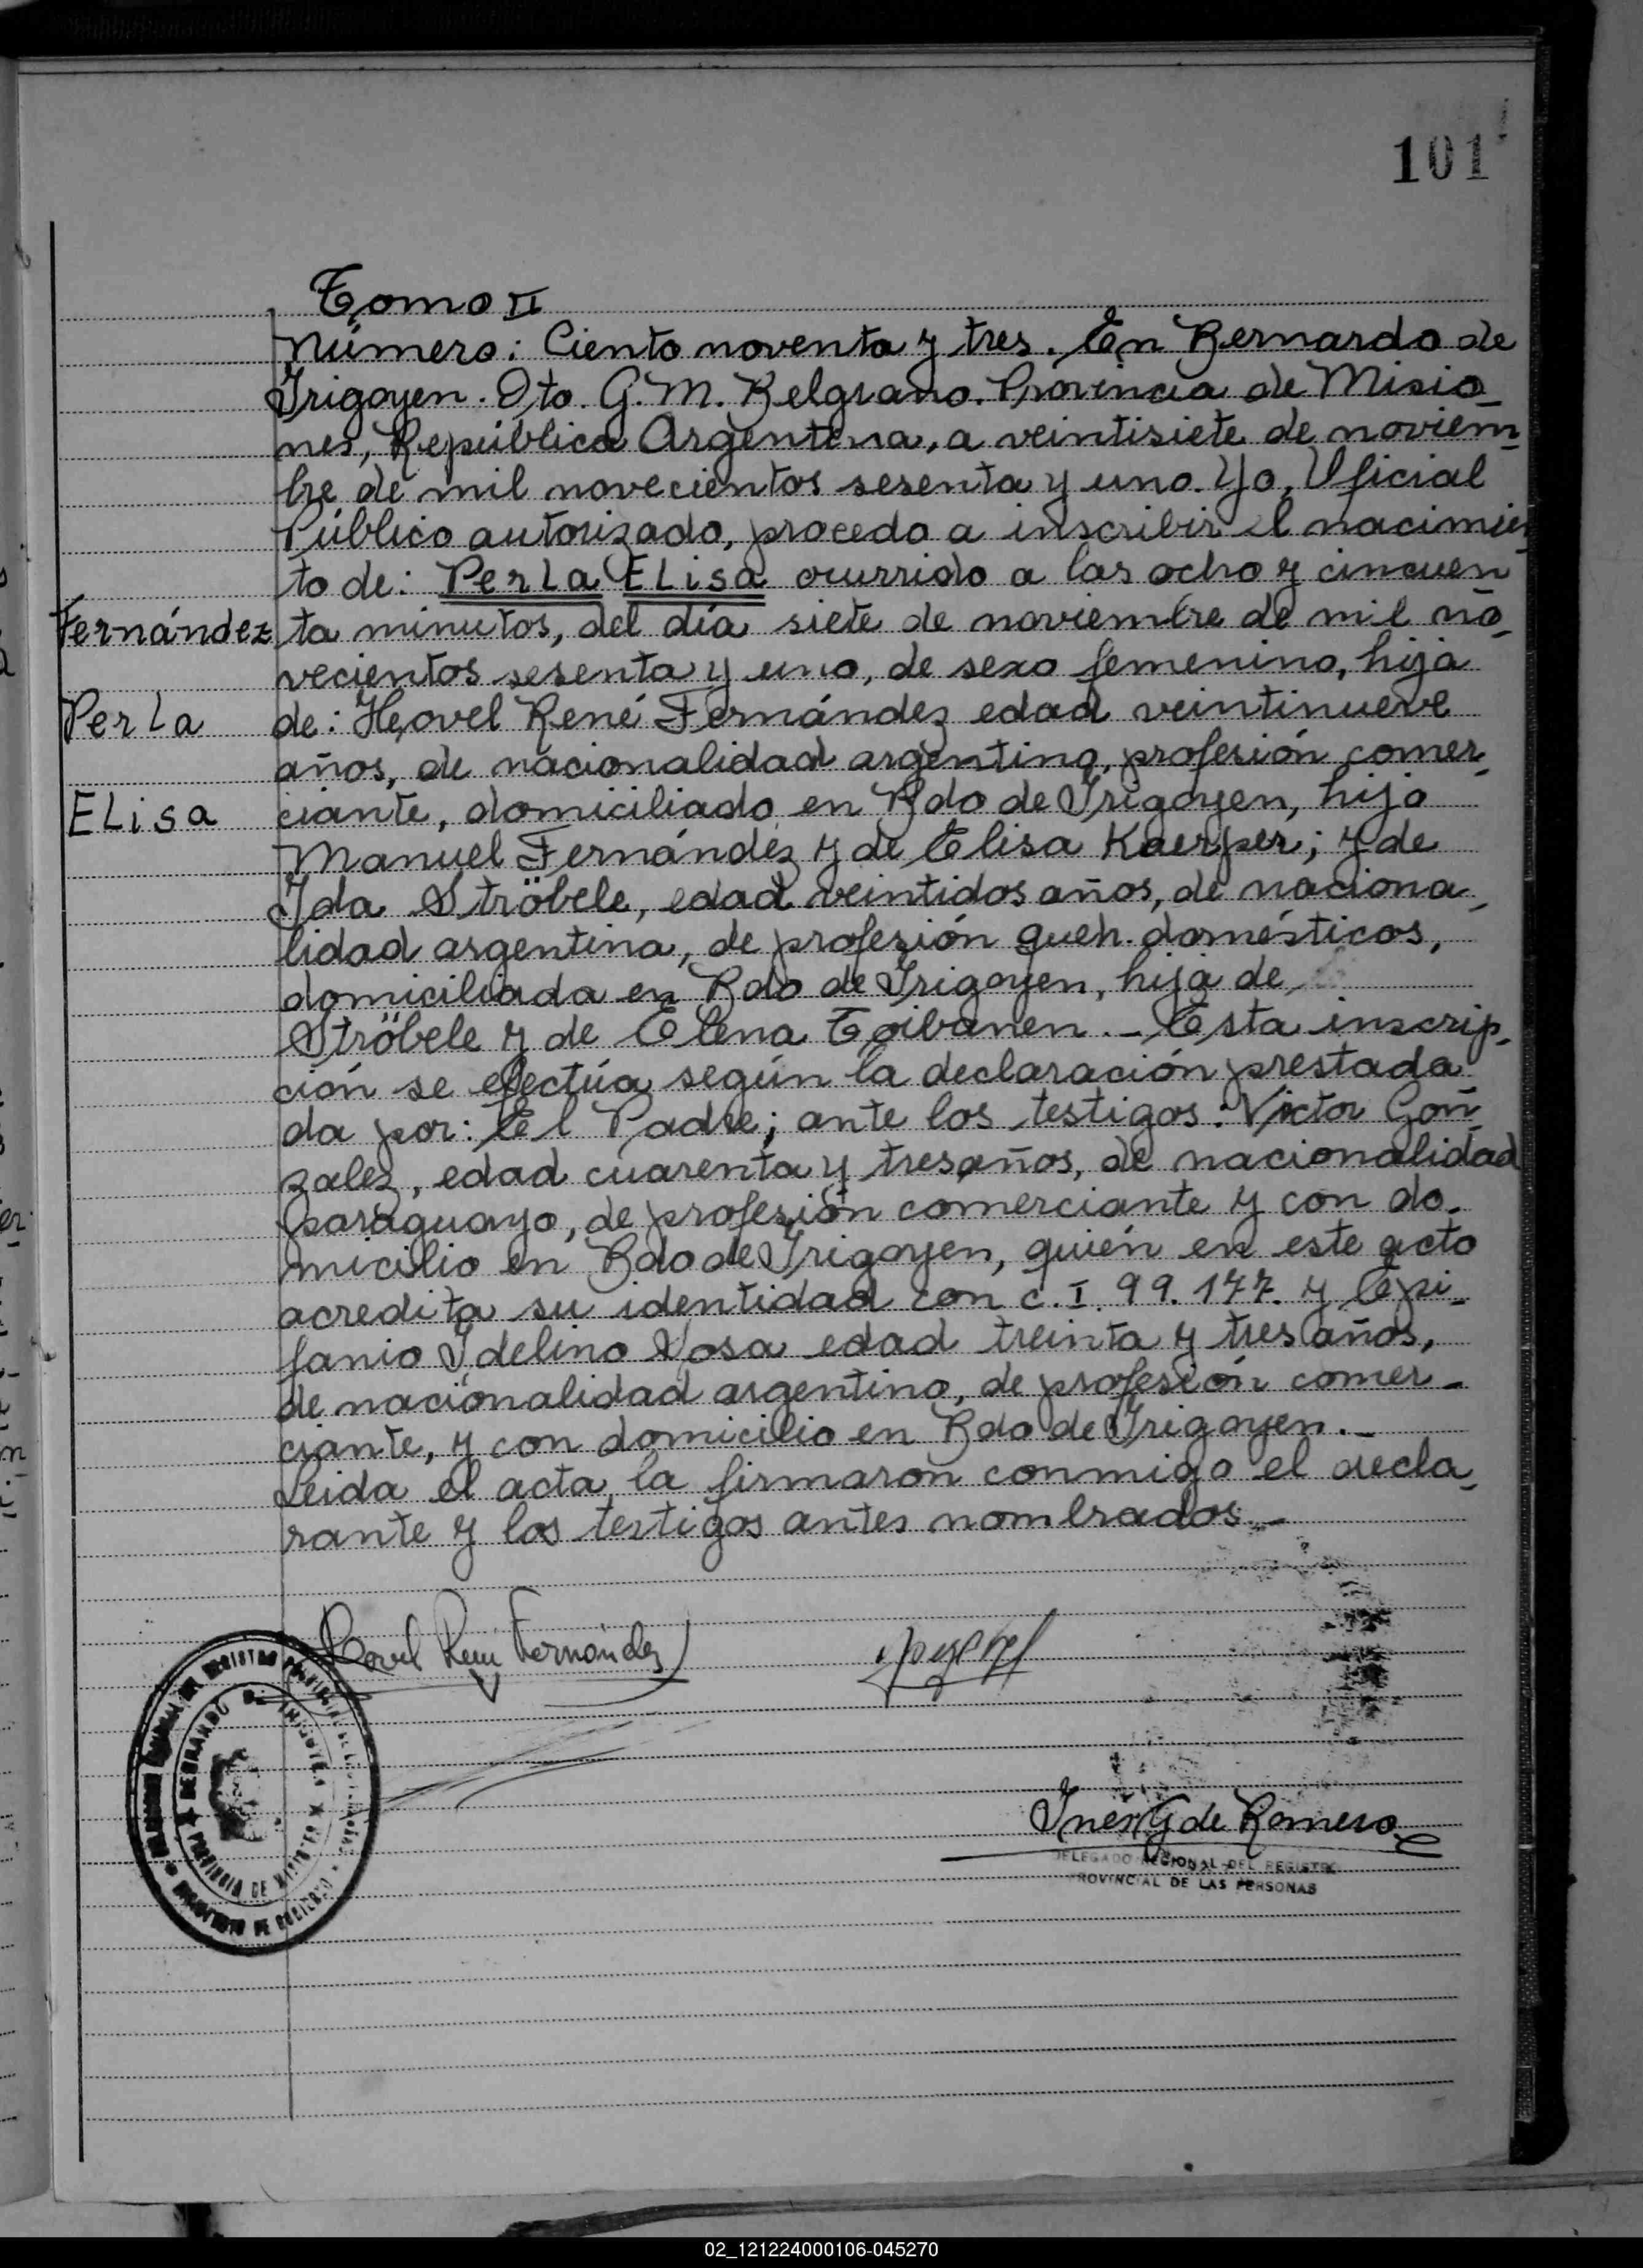 101
Tomo II
Número: Ciento noventa y tres. En Bernardo de
Irigoyen. Dto. G. M. Belgrano. Provincia de Misio_
nes, República Argentina, a veintisiete de noviem_
bre de mil novecientos sesenta y uno. Yo, Oficial
Público autorizado, procedo a inscribir el nacimien
to de: Perla Elisa ocurrido a las ocho y cincuen
Fernández ta minutos, del día siete de noviembre de mil no_
vecientos sesenta y uno, de sexo femenino, hija
Perla de: Heovel René Fernández edad veintinueve
años, de nacionalidad argentino, profesión comer_
Elisa ciante, domiciliado en Bdo de Irigoyen, hijo
Manuel Fernández y de Elisa Kaerper; y de
Ida Ströbele, edad veintidos años, de naciona_
lidad argentina, de profesión queh. domésticos,
domiciliada en Bdo de Irigoyen, hija de
Ströbele y de Elena Toibanen._ Esta inscrip_
ción se efectúa según la declaración prestada
da por: El Padre; ante los testigos: Victor Gon_
zalez, edad cuarenta y tres años, de nacionalidad
paraguayo, de profesión comerciante y con do_
micilio en Bdo de Irigoyen, quién en este acto
acredita su identidad con C. I. 99.177. y Epi_
fanio Idelino Sosa edad treinta y tres años,
de nacionalidad argentino, de profesión comer_
ciante, y con domicilio en Bdo de Irigoyen._
Leida el acta, la firmaron conmigo el decla_
rante y los testigos antes nombrados._
René Fernández
Ines G de Romero
DELEGADO REGIONAL DEL REGISTRO
PROVINCIAL DE LAS PERSONAS
BERNARDO DE IRIGOYEN
PROVINCIA DE MISIONES
02_121224000106-045270